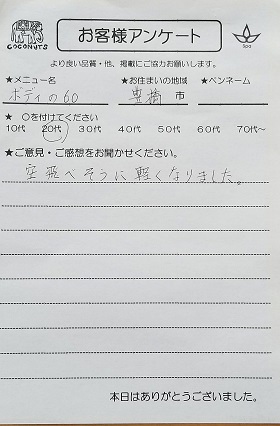 COCONUTS
お客様アンケート
Spa
より良い品質・他、掲載にご協力お願いします。
★メニュー名 ★お住まいの地域 ★ペンネーム
ボディの60 豊橋 市
★ ○を付けてください
10代 20代 30代 40代 50代 60代 70代～
★ご意見・ご感想をお聞かせください。
空飛べそうに軽くなりました。
本日はありがとうございました。